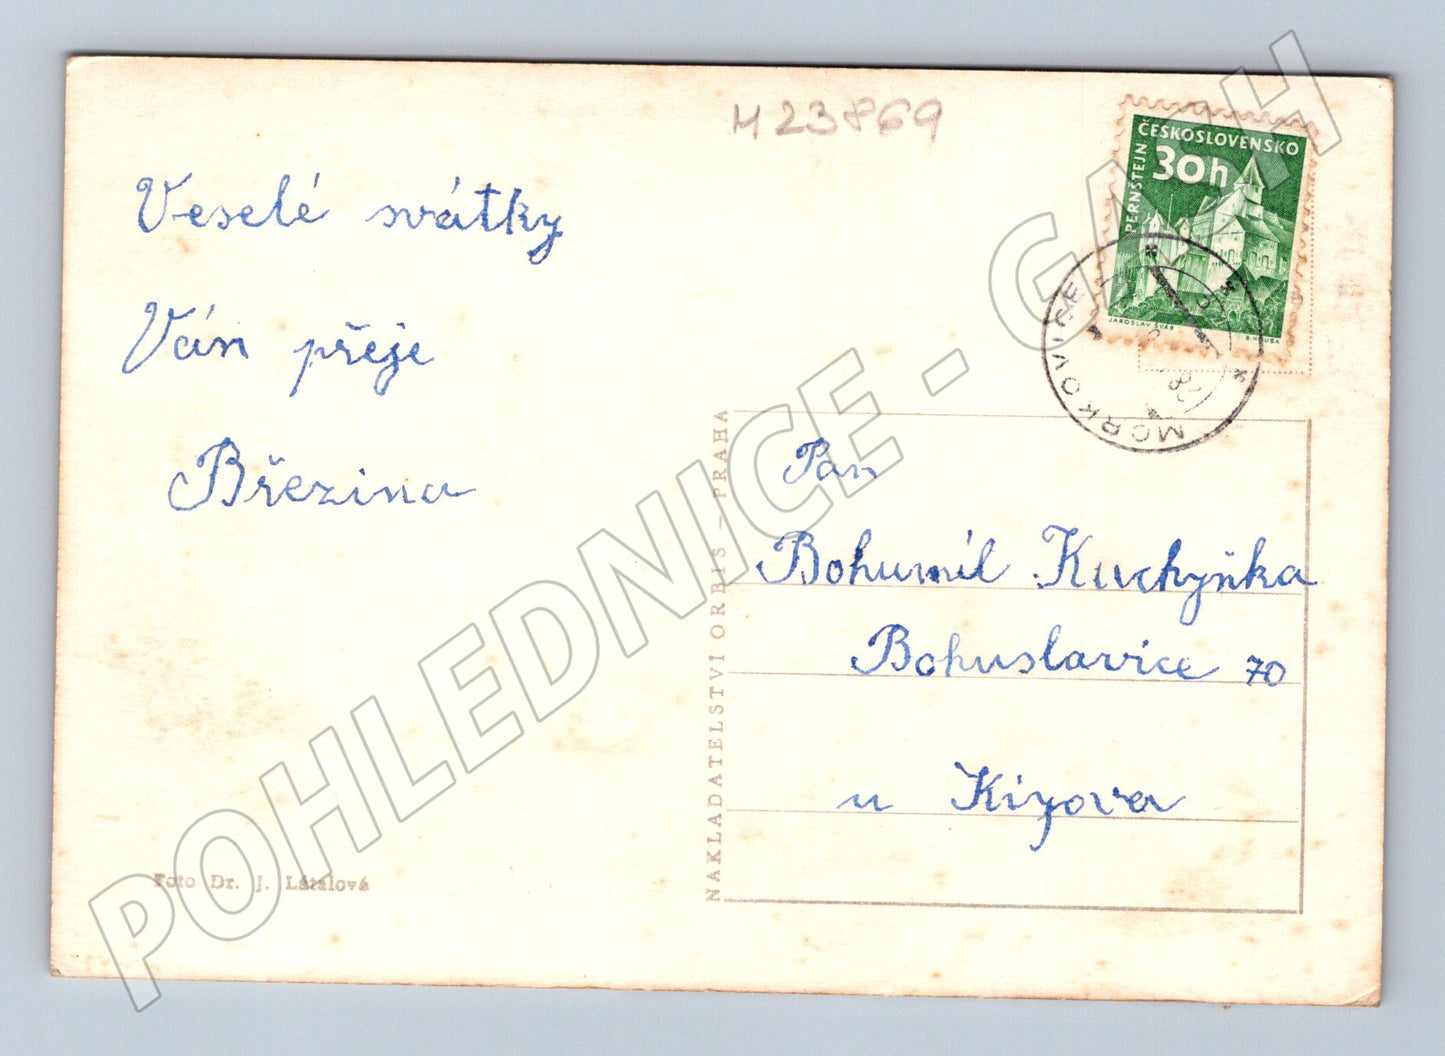 M 23869
ČESKOSLOVENSKO
30h
PERNŠTEJN
JAROSLAV ŠVÁB
B. HOUSA
MORKOVICE
Veselé svátky
Ván přeje
Březina
Foto Dr. J. Látalová
NAKLADATELSTVÍ ORBIS - PRAHA
Pan
Bohumil Kuchyňka
Bohuslavice 70
u Kyjova
POHLEDNICE - GACH